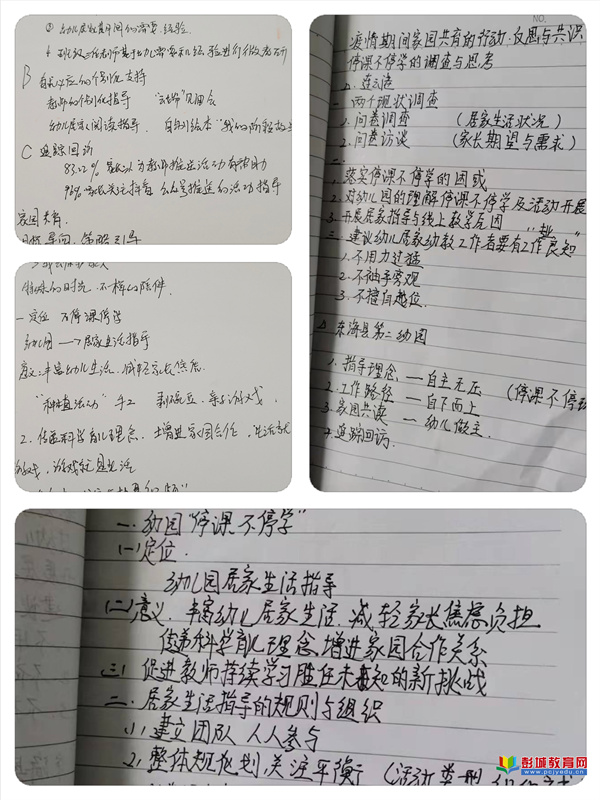 ③ 幼儿居家其间的需要、经验
B 自我效应的个别化支持
教师的个别化指导
幼儿居家阅读指导. 自制绘本"我们的防疫故事
C 追踪回访
83.2% 家长认为老师推送活动有帮助
家园共育
目标导向、策略引导
特殊的时光,不一样的陪伴.
一 定位 不停课停学
幼儿园 → 居家生活指导
意义:丰富幼儿生活,减轻家长焦虑
2. 传递科学育儿理念,增进家园合作,生活就
游戏,游戏就是生活
NO.
疫情期间家园共育的行动、反思与共识
停课不停学的调查与思考
一. 连云港
一 两个现状调查
1. 问卷调查 (居家生活状况)
2. 问卷访谈 (家长期望与需求)
二.
1. 落实停课不停学的困惑
2. 对幼儿园的理解停课不停学及活动开展
3. 开展居家指导与线上教学互困
三 建议幼儿居家幼教工作者要有工作良知
1. 不用力过猛
2. 不袖手旁观
3. 不擅自越位.
东海县第二幼园
1. 指导理念 — 自主无压 (停课不停
2. 工作路径 — 自下而上
3. 家园共读 — 幼儿做主.
4. 追踪回访.
一. 幼园"停课不停学"
(一)定位.
幼儿园居家生活指导
(二)意义. 丰富幼儿居家生活.减轻家长焦虑负担
传递科学育儿理念.增进家园合作关系
(三) 促进教师持续学习胜任未知的新挑战
二. 居家生活指导的规则与组织
(1) 建立团队 人人参与
2) 整体规划 关注平衡 (活动类型
彭城教育网
www.pcjyedu.cn